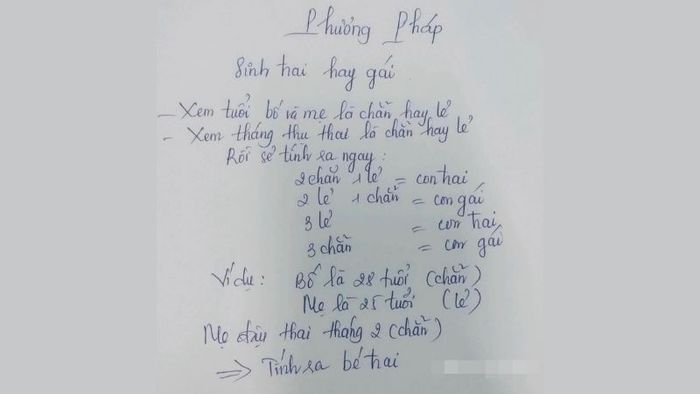 Phương Pháp
Sinh trai hay gái
- Xem tuổi bố và mẹ là chẵn hay lẻ
- Xem tháng thụ thai là chẵn hay lẻ
Rồi sẽ tính ra ngay :
2 chẵn 1 lẻ = con trai
2 lẻ 1 chẵn = con gái
3 lẻ = con trai
3 chẵn = con gái
Ví dụ : Bố là 28 tuổi (chẵn)
Mẹ là 25 tuổi (lẻ)
Mẹ đậu thai tháng 2 (chẵn)
=> Tính ra bé trai